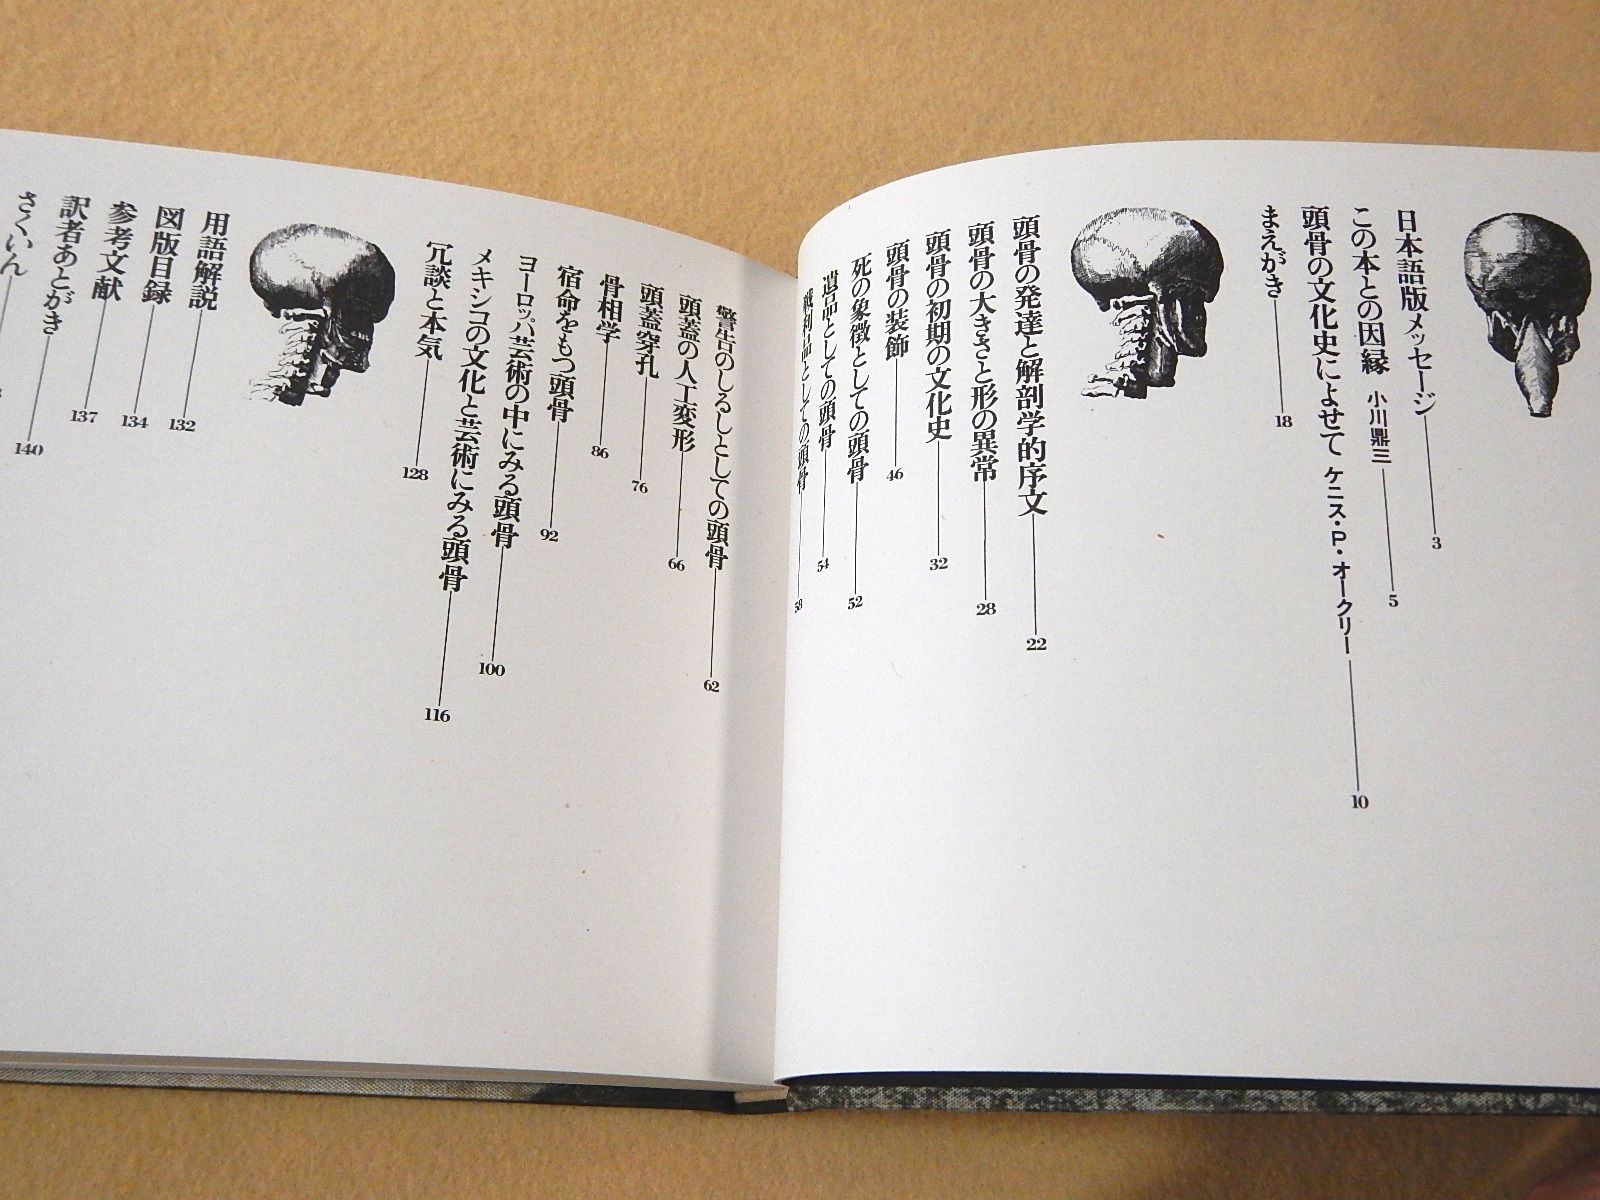 日本語版メッセージ 3
この本との因縁 小川鼎三 5
頭骨の文化史によせて ケニス・P・オークリー 10
まえがき 18
頭骨の発達と解剖学的序文 22
頭骨の大きさと形の異常 28
頭骨の初期の文化史 32
頭骨の装飾 46
死の象徴としての頭骨 52
遺品としての頭骨 54
戦利品としての頭骨 58
警告のしるしとしての頭骨 62
頭蓋の人工変形 66
頭蓋穿孔 76
骨相学 86
宿命をもつ頭骨 92
ヨーロッパ芸術の中にみる頭骨 100
メキシコの文化と芸術にみる頭骨 116
冗談と本気 128
用語解説 132
図版目録 134
参考文献 137
訳者あとがき 140
さくいん